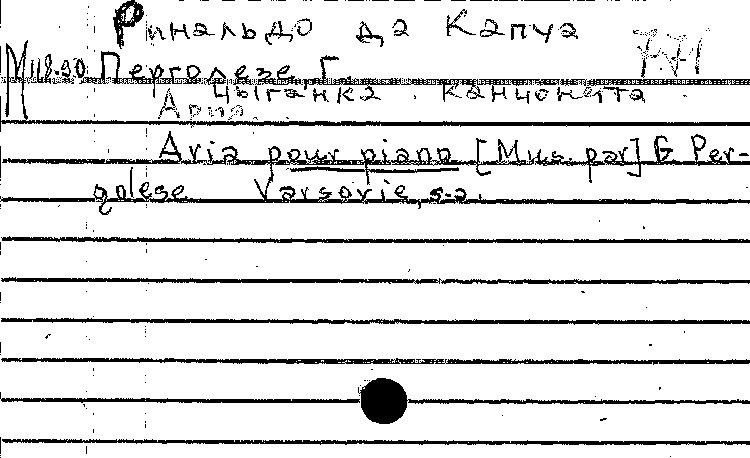 Ринальдо да Капуа
М118.90 Перголезе, Г. 771
Цыганка. Канцонетта
Ария.
Aria pour piano [Mus. par] G Per-
golese Varsovie, s.a.